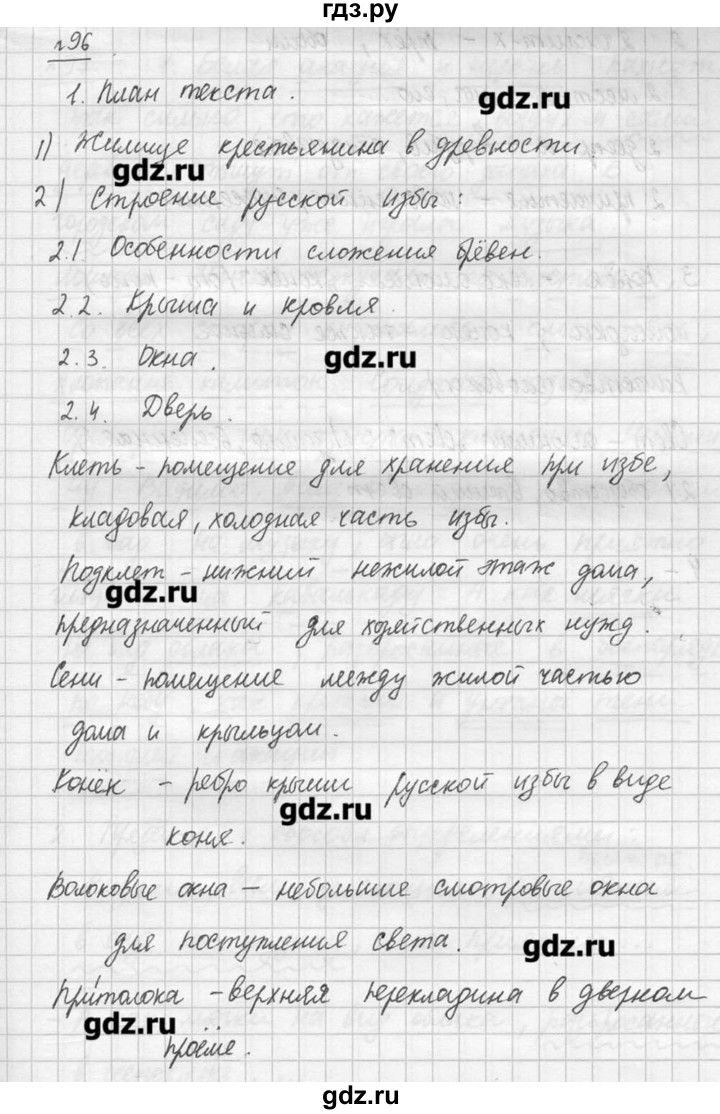 гдз.ру
№96
1. План текста.
gdz.ru
1) Жилище крестьянина в древности.
gdz.ru
2) Строение русской избы:
2.1. Особенности сложения брёвен.
2.2. Крыша и кровля.
2.3. Окна.
gdz.ru
2.4. Дверь.
Клеть - помещение для хранения при избе,
кладовая, холодная часть избы.
Подклет - нижний нежилой этаж дома,
gdz.ru
предназначенный для хозяйственных нужд.
Сени - помещение между жилой частью
дома и крыльцом.
Конёк - ребро крыши русской избы в виде
gdz.ru
коня.
Волоковые окна - небольшие смотровые окна
для поступления света.
gdz.ru
Притолока - верхняя перекладина в дверном
gdz.ru
проёме.
gdz.ru